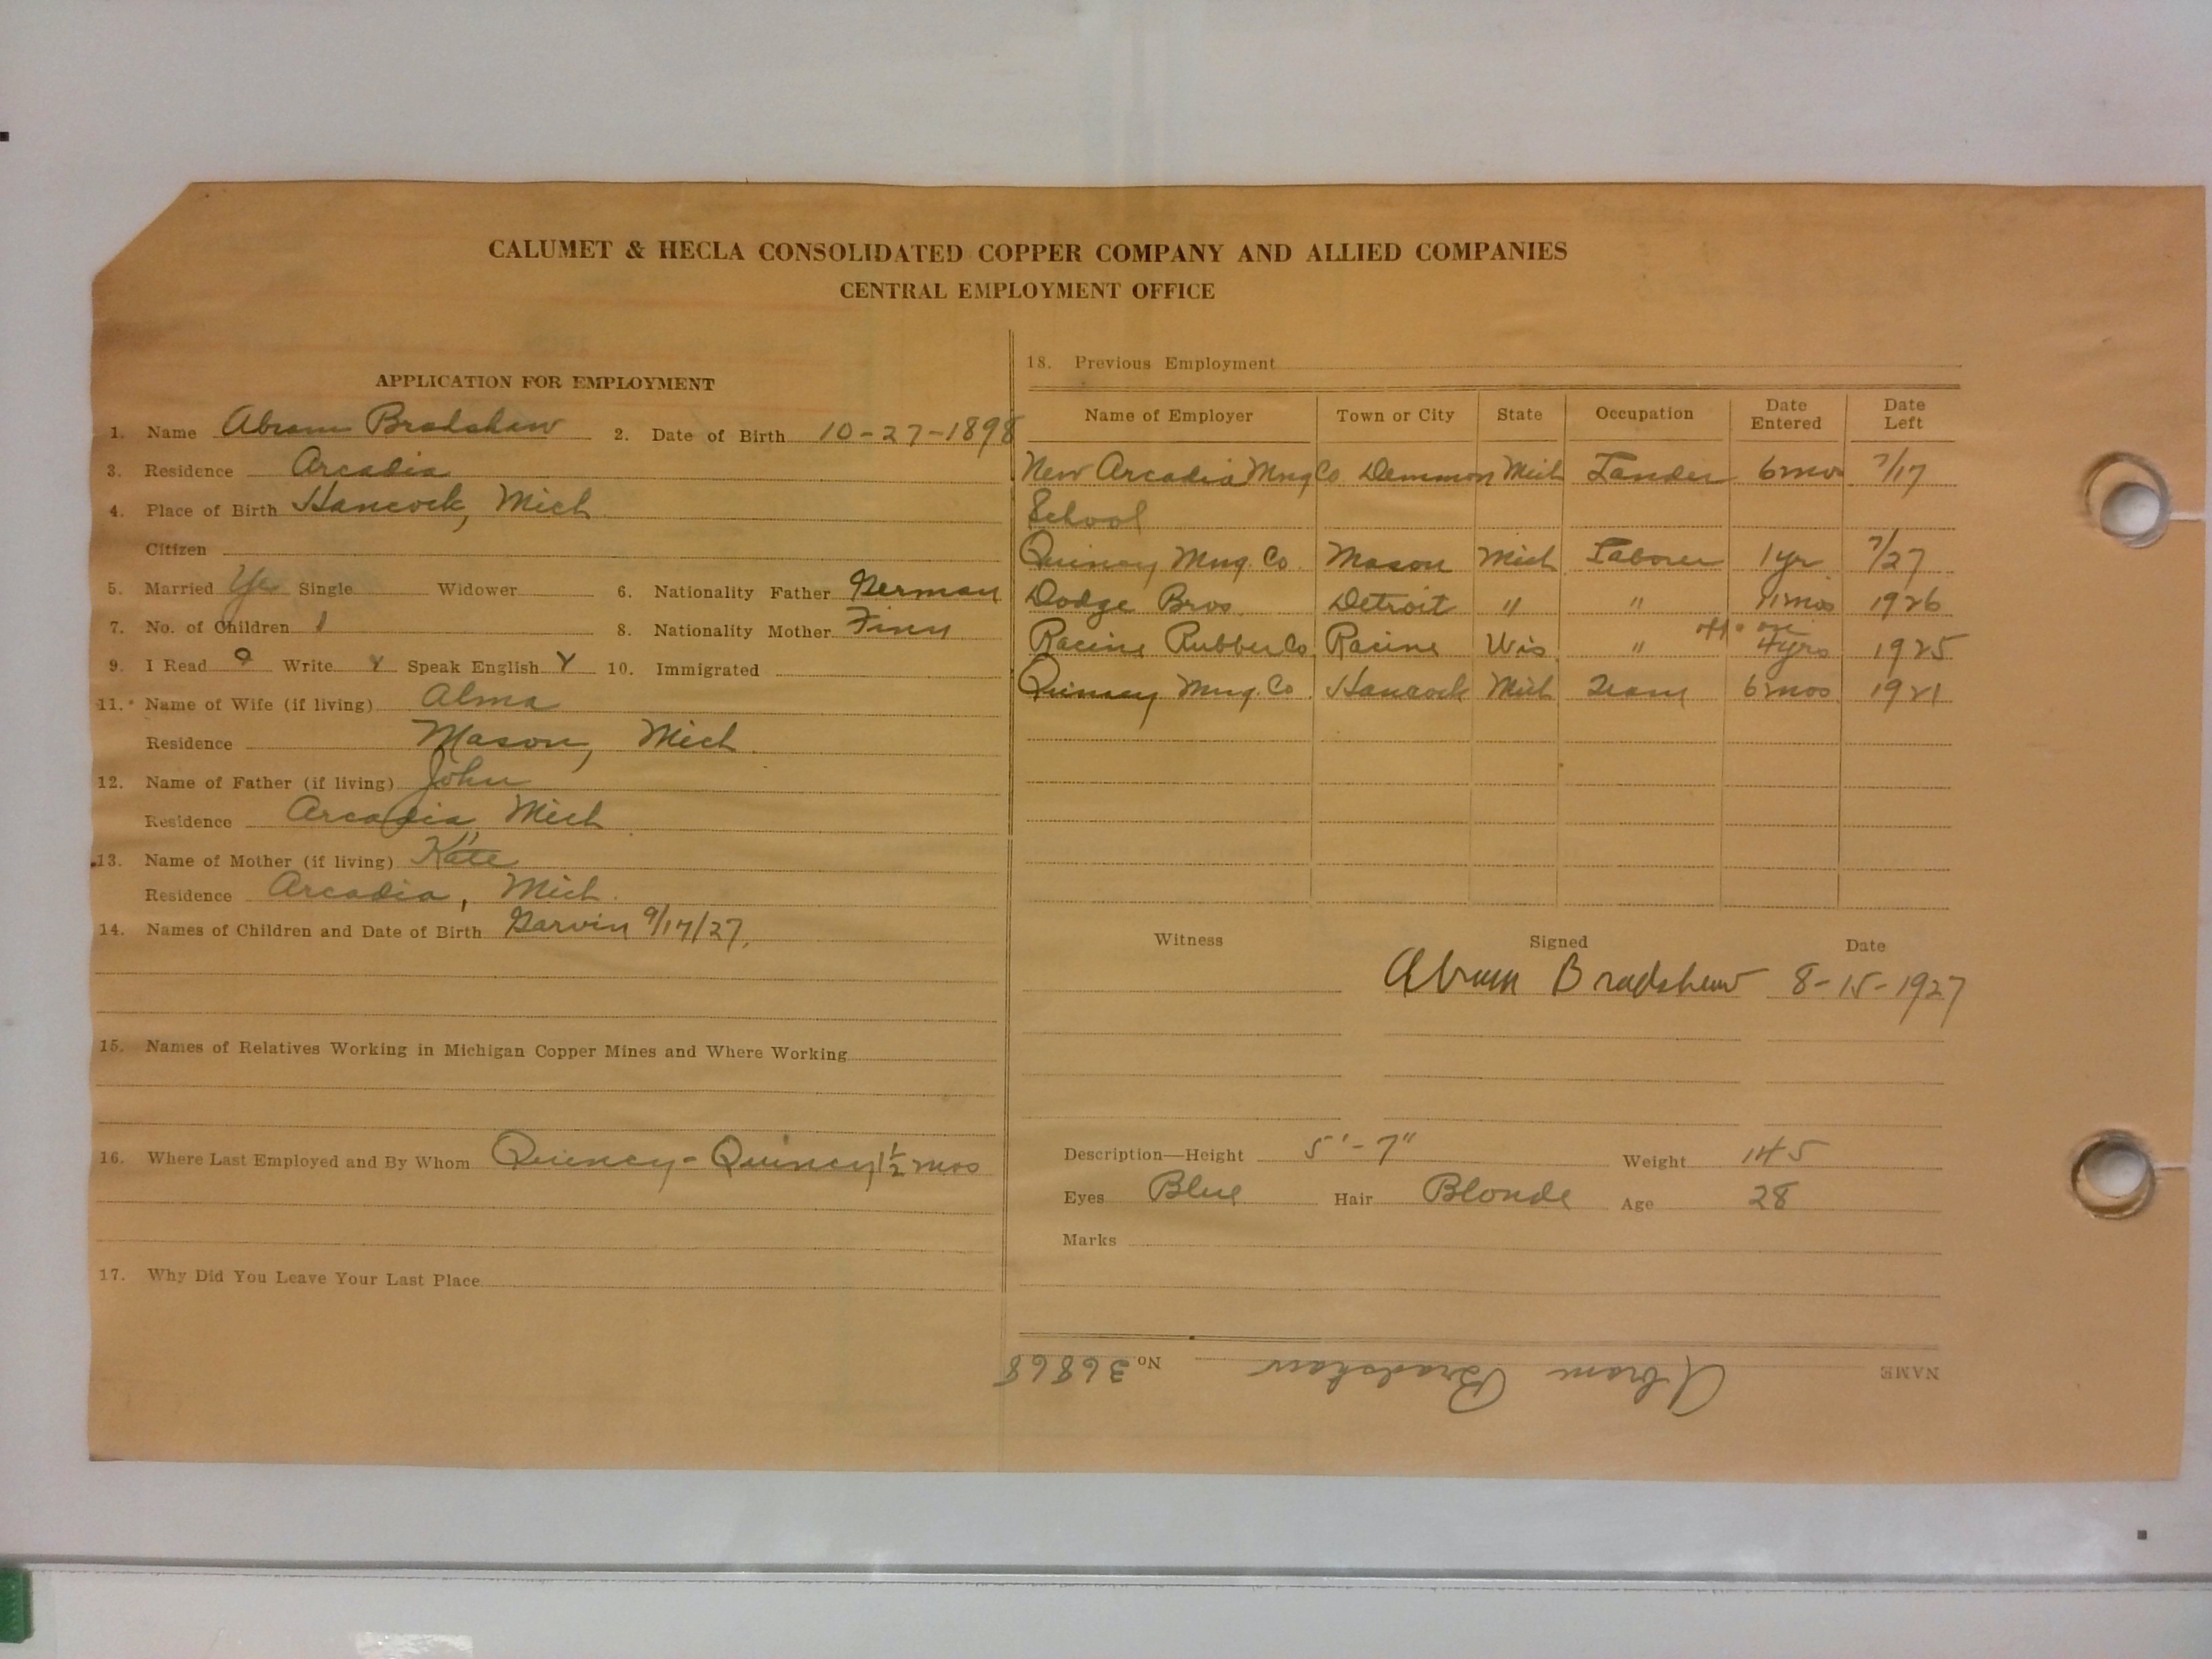 CALUMET & HECLA CONSOLIDATED COPPER COMPANY AND ALLIED COMPANIES
CENTRAL EMPLOYMENT OFFICE
APPLICATION FOR EMPLOYMENT
1. Name Abram Bradshaw 2. Date of Birth 10-27-1898
3. Residence Arcadia
4. Place of Birth Hancock, Mich
Citizen
5. Married Yes Single Widower 6. Nationality Father German
7. No. of Children 1 8. Nationality Mother Finn
9. I Read Write Y Speak English Y 10. Immigrated
11. Name of Wife (if living) Alma
Residence Mason, Mich.
12. Name of Father (if living) John
Residence Arcadia, Mich
13. Name of Mother (if living) Kate
Residence Arcadia, Mich.
14. Names of Children and Date of Birth Garvin 9/17/27.
15. Names of Relatives Working in Michigan Copper Mines and Where Working
16. Where Last Employed and By Whom Quincy - Quincy 1½ mos
17. Why Did You Leave Your Last Place
18. Previous Employment
Name of Employer Town or City State Occupation Date Entered Date Left
New Arcadia Mng Co. Demmon Mich 6 mos 7/17
School
Quincy Mng. Co. Mason Mich Laborer 1 yr. 7/27
Dodge Bros. Detroit " " 11 mos 1926
Racine Rubber Co. Racine Wis. " 4 yrs 1925
Quincy Mng. Co. Hancock Mich 6 mos 1921
Witness Signed Date
Abram Bradshaw 8-15-1927
Description—Height 5'-7" Weight 145
Eyes Blue Hair Blonde Age 28
Marks
NAME Abram Bradshaw No 36868